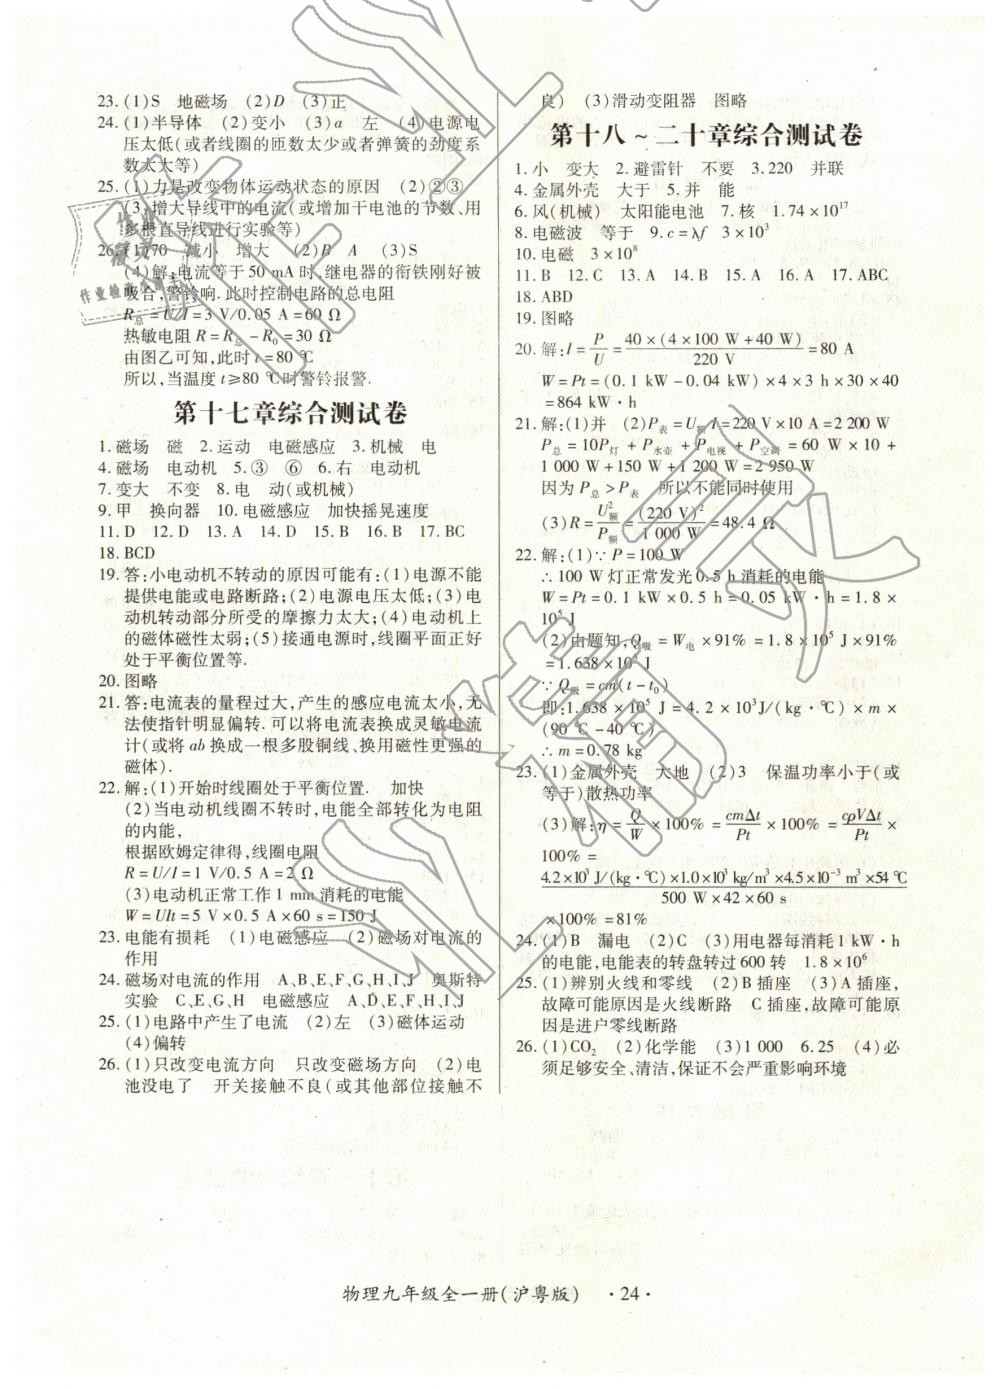 23. (1)S 地磁场 (2)D (3)正
24. (1)半导体 (2)变小 (3)a 左 (4)电源电
压太低(或者线圈的匝数太少或者弹簧的劲度系
数太大等)
25. (1)力是改变物体运动状态的原因 (2)②③
(3)增大导线中的电流(或增加干电池的节数、用
多根直导线进行实验等)
26. (1)70 减小 增大 (2)B A (3)S
(4)解:电流等于 50 mA 时,继电器的衔铁刚好被
吸合,警铃响.此时控制电路的总电阻
R总=U/I=3 V/0.05 A=60 Ω
热敏电阻 R=R总-R0=30 Ω
由图乙可知,此时 t=80 ℃
所以,当温度 t≥80 ℃时警铃报警.
第十七章综合测试卷
1. 磁场 磁 2. 运动 电磁感应 3. 机械 电
4. 磁场 电动机 5. ③ ⑥ 6. 右 电动机
7. 变大 不变 8. 电 动(或机械)
9. 甲 换向器 10. 电磁感应 加快摇晃速度
11. D 12. D 13. A 14. D 15. B 16. BC 17. BC
18. BCD
19. 答:小电动机不转动的原因可能有:(1)电源不能
提供电能或电路断路;(2)电源电压太低;(3)电
动机转动部分所受的摩擦力太大;(4)电动机上
的磁体磁性太弱;(5)接通电源时,线圈平面正好
处于平衡位置等.
20. 图略
21. 答:电流表的量程过大,产生的感应电流太小,无
法使指针明显偏转. 可以将电流表换成灵敏电流
计(或将 ab 换成一根多股铜线、换用磁性更强的
磁体).
22. 解:(1)开始时线圈处于平衡位置. 加快
(2)当电动机线圈不转时,电能全部转化为电阻
的内能,
根据欧姆定律得,线圈电阻
R=U/I=1 V/0.5 A=2 Ω
(3)电动机正常工作 1 min 消耗的电能
W=UIt=5 V×0.5 A×60 s=150 J
23. 电能有损耗 (1)电磁感应 (2)磁场对电流的
作用
24. 磁场对电流的作用 A、B、E、F、G、H、I、J 奥斯特
实验 C、E、G、H 电磁感应 A、D、E、F、H、I、J
25. (1)电路中产生了电流 (2)左 (3)磁体运动
(4)偏转
26. (1)只改变电流方向 只改变磁场方向 (2)电
池没电了 开关接触不良(或其他部位接触不
良) (3)滑动变阻器 图略
第十八~二十章综合测试卷
1. 小 变大 2. 避雷针 不要 3. 220 并联
4. 金属外壳 大于 5. 并 能
6. 风(机械) 太阳能电池 7. 核 1.74×10^17
8. 电磁波 等于 9. c=λf 3×10^3
10. 电磁 3×10^8
11. B 12. C 13. A 14. A 15. A 16. A 17. ABC
18. ABD
19. 图略
20. 解:I=P/U=40×(4×100 W+40 W)/220 V=80 A
W=Pt=(0.1 kW-0.04 kW)×4×3 h×30×40
=864 kW·h
21. 解:(1)并 (2)P表=U额I=220 V×10 A=2 200 W
P总=10P灯+P水壶+P电视+P空调=60 W×10+
1 000 W+150 W+1 200 W=2 950 W
因为 P总>P表 所以不能同时使用
(3)R=U额²/P额=(220 V)²/1 000 W=48.4 Ω
22. 解:(1)∵P=100 W
∴100 W 灯正常发光 0.5 h 消耗的电能
W=Pt=0.1 kW×0.5 h=0.05 kW·h=1.8×
10^5 J
(2)由题知,Q吸=W电×91%=1.8×10^5 J×91%
=1.638×10^5 J
∵Q吸=cm(t-t0)
即:1.638×10^5 J=4.2×10^3 J/(kg·℃)×m×
(90 ℃-40 ℃)
∴m=0.78 kg
23. (1)金属外壳 大地 (2)3 保温功率小于(或
等于)散热功率
(3)解:η=Q/W×100%=cmΔt/Pt×100%=cρVΔt/Pt×
100%=
4.2×10^3 J/(kg·℃)×1.0×10^3 kg/m^3×4.5×10^-3 m^3×54 ℃
500 W×42×60 s
×100%=81%
24. (1)B 漏电 (2)C (3)用电器每消耗 1 kW·h
的电能,电能表的转盘转过 600 转 1.8×10^6
25. (1)辨别火线和零线 (2)B 插座 (3)A 插座,
故障可能原因是火线断路 C 插座,故障可能原
因是进户零线断路
26. (1)CO2 (2)化学能 (3)1 000 6.25 (4)必
须足够安全、清洁,保证不会严重影响环境
物理九年级全一册(沪粤版) ·24·